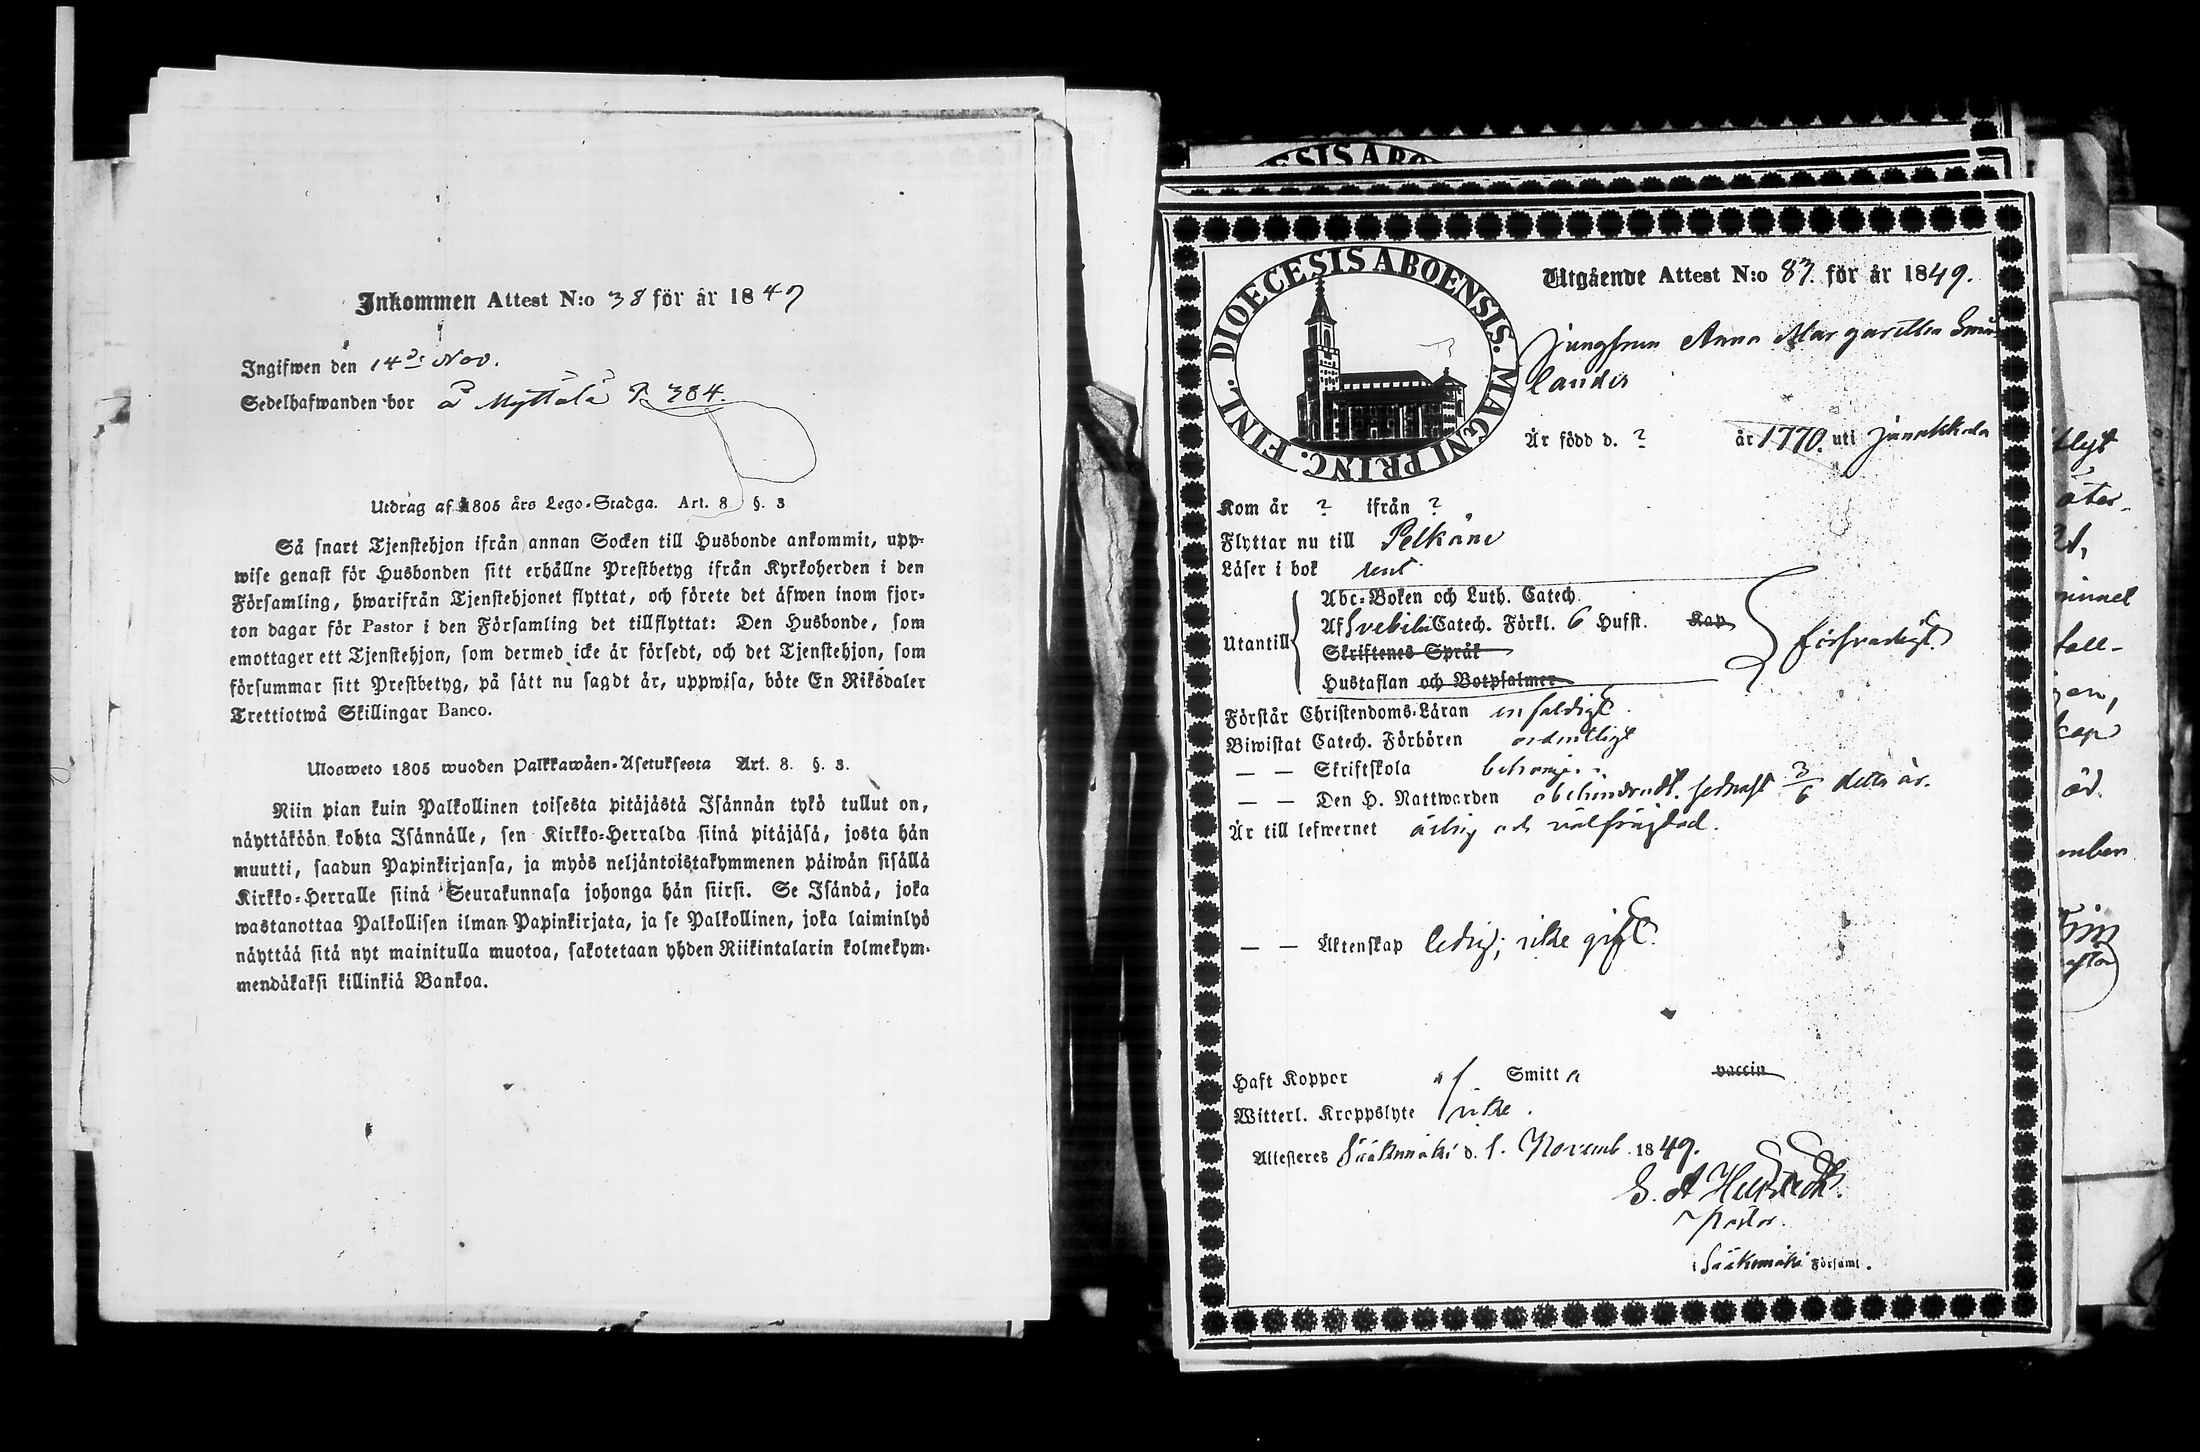 Inkommen Attest N:o 38 för år 1849
Ingifwen den 14de Nov.
Sedelhafwanden bor å Myttälä P. 384.
Utdrag af 1805 års Lego-Stadga. Art. 8 §. 3
Så snart Tjenstehjon ifrån annan Socken till Husbonde ankommit, upp-
wise genast för Husbonden sitt erhållne Prestbetyg ifrån Kyrkoherden i den
Församling, hwarifrån Tjenstehjonet flyttat, och förete det äfwen inom fjor-
ton dagar för Pastor i den Församling det tillflyttat: Den Husbonde, som
emottager ett Tjenstehjon, som dermed icke är försedt, och det Tjenstehjon, som
försummar sitt Prestbetyg, på sätt nu sagdt är, uppwisa, böte En Riksdaler
Trettiotwå Skillingar Banco.
Ulosweto 1805 wuoden Palkkawäen-Asetuksesta Art. 8. §. 3.
Niin pian kuin Palkollinen toisesta pitäjästä Isännän tykö tullut on,
näyttäköön kohta Isännälle, sen Kirkko-Herralda siinä pitäjäsä, josta hän
muutti, saadun Papinkirjansa, ja myös neljäntoistakymmenen päiwän sisällä
Kirkko-Herralle siinä Seurakunnasa johonga hän siirsi. Se Isändä, joka
wastanottaa Palkollisen ilman Papinkirjata, ja se Palkollinen, joka laiminlyö
näyttää sitä nyt mainitulla muotoa, sakotetaan yhden Riikintalarin kolmekym-
mendäkaksi killinkiä Bankoa.
DIOECESIS ABOENSIS. MAGNI PRINC. FINL.
Utgående Attest N:o 83. för år 1849.
Jungfrun Anna Margaretha
lander
Är född d. ? år 1770. uti Janakkala
Kom år ? ifrån ?
Flyttar nu till Pelkäne
Läser i bok rent
Abc-Boken och Luth. Catech.
Utantill Af Svebilii Catech. Förkl. 6 Hufst. Kap
Skriftenes Språk
Hustaflan och Botpsalmer
försvarligt.
Förstår Christendoms-Läran enfaldigt.
Biwistat Catech. Förhören ordentligt
— — Skriftskola
— — Den H. Nattwarden obehindradt. sednast 3/6 detta år.
Är till lefwernet ärlig och välfrejdad.
— — Äktenskap ledig; icke gift.
Haft Koppor af Smitta vaccin
Witterl. Kroppslyte icke.
Attesteres Sääksmäki d. 1. Novemb. 1849.
Pastor.
i Sääksmäki Församl.